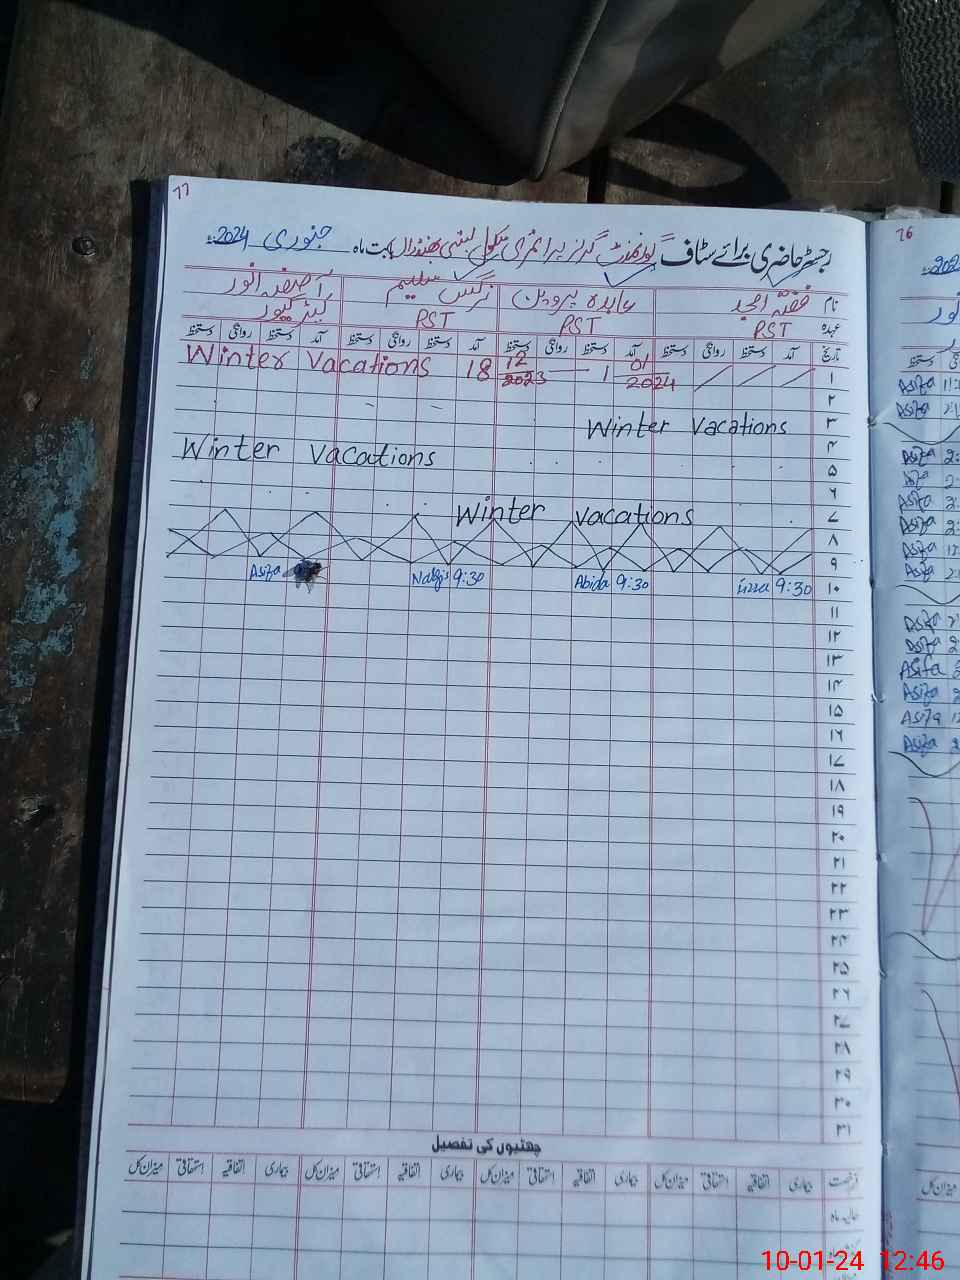 77
رجسٹر حاضری برائے سٹاف گورنمنٹ گرلز پرائمری سکول بستی بھنڈرال بابت ماہ جنوری 2024ء
نام عابدہ پروین نرگس سلیم آصفہ انور
عہدہ PST PST PST کیئر گیور
تاریخ آمد دستخط روانگی دستخط آمد دستخط روانگی دستخط آمد دستخط روانگی دستخط آمد دستخط روانگی دستخط
۱ Winter Vacations 18 12/2023 — 1 01/2024
۲
۳ Winter Vacations
۴ Winter Vacations
۵
۶
۷ Winter Vacations
۸
۹
۱۰ Asifa Nargis 9:30 Abida 9:30 Fizza 9:30
۱۱
۱۲
۱۳
۱۴
۱۵
۱۶
۱۷
۱۸
۱۹
۲۰
۲۱
۲۲
۲۳
۲۴
۲۵
۲۶
۲۷
۲۸
۲۹
۳۰
۳۱
چھٹیوں کی تفصیل
رخصت بیماری اتفاقیہ استحقاقی میزان کل بیماری اتفاقیہ استحقاقی میزان کل بیماری اتفاقیہ استحقاقی میزان کل بیماری اتفاقیہ استحقاقی میزان کل
حالیہ ماہ
76
Asifa
Asifa
Asifa
Asifa
Asifa
Asifa
Asifa
Asifa
Asifa
Asifa
Asifa
Asifa
میزان کل
10-01-24 12:46